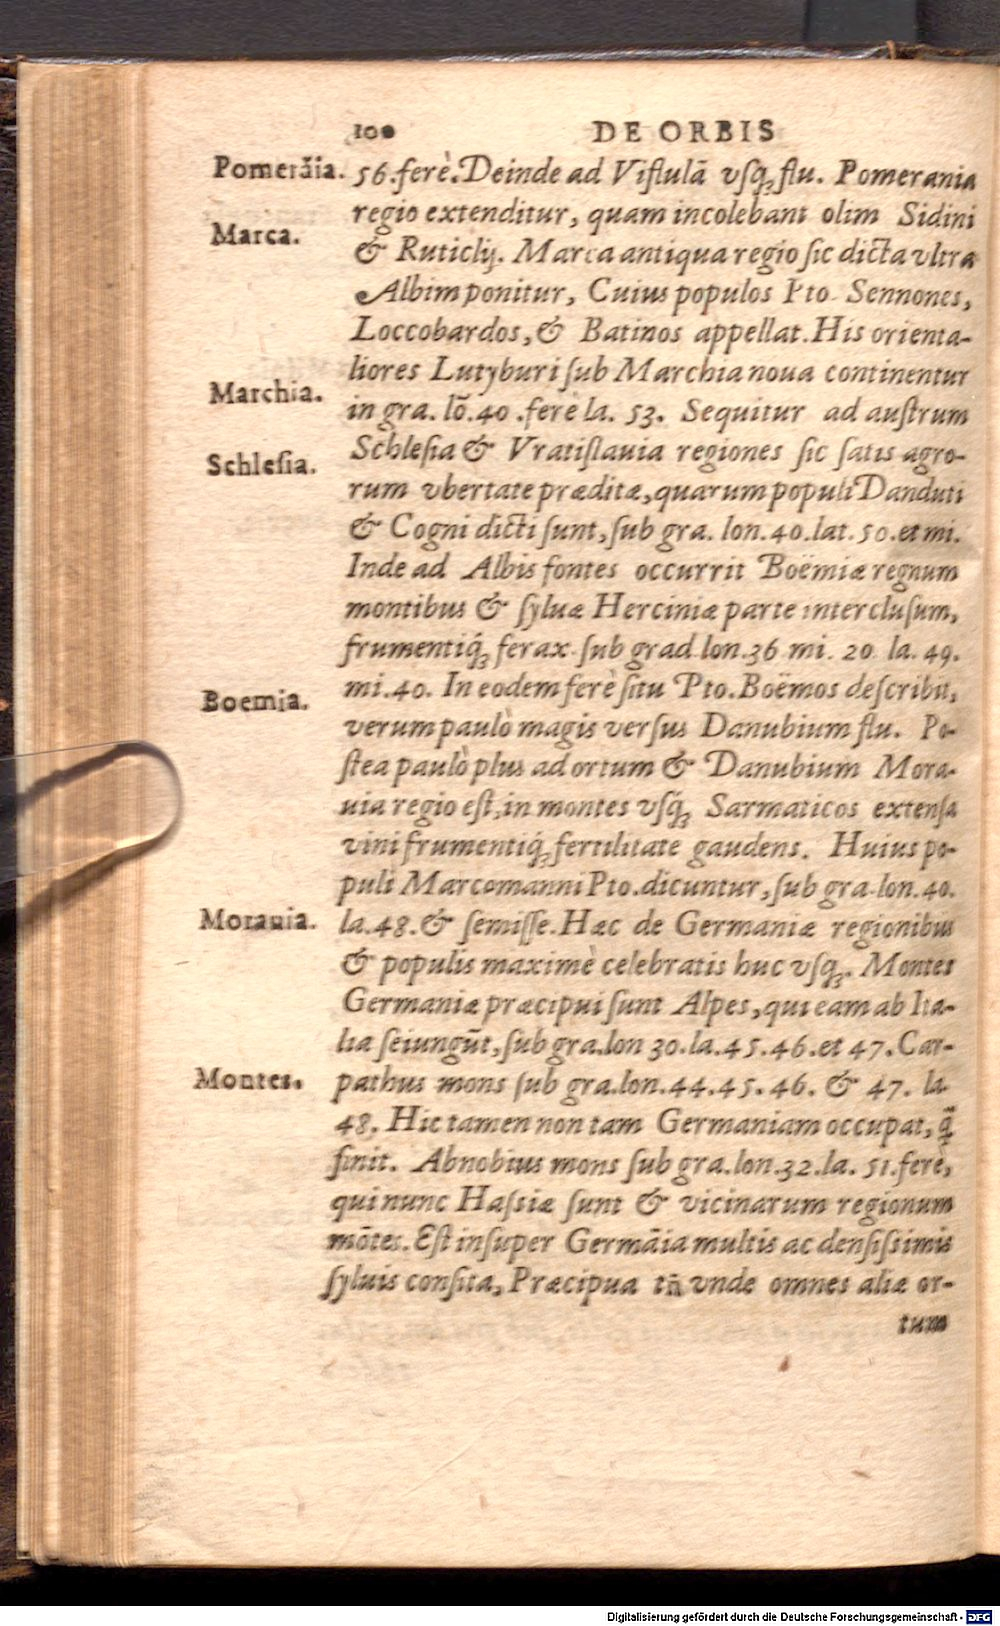 100 DE ORBIS
Pomerāia. 56. ferè. Deinde ad Viſtulā vſq; flu. Pomerania
regio extenditur, quam incolebant olim Sidini
Marca. & Ruticlij. Marca antiqua regio ſic dicta vltra
Albim ponitur, Cuius populos Pto. Sennones,
Loccobardos, & Batinos appellat. His orienta-
liores Lutyburi ſub Marchia noua continentur
Marchia. in gra. lō. 40. ferè la. 53. Sequitur ad auſtrum
Schleſia. Schleſia & Vratiſlauia regiones ſic ſatis agro-
rum vbertate præditæ, quarum populi Danduti
& Cogni dicti ſunt, ſub gra. lon. 40. lat. 50. et mi.
Inde ad Albis fontes occurrit Boëmiæ regnum
montibus & ſyluæ Herciniæ parte interclusum,
frumentiq́; ferax ſub grad. lon. 36 mi. 20 la. 49.
Boemia. mi. 40. In eodem ferè ſitu Pto. Boëmos deſcribit,
verum paulò magis verſus Danubium flu. Po-
ſtea paulò plus ad ortum & Danubium Mora-
uia regio eſt, in montes vſq́; Sarmaticos extenſa
vini frumentiq́; fertilitate gaudens. Huius po-
puli Marcomanni Pto. dicuntur, ſub gra. lon. 40.
Morauia. la. 48. & ſemiſſe. Hæc de Germaniæ regionibus
& populis maximè celebratis huc vſq;. Montes
Germaniæ præcipui ſunt Alpes, qui eam ab Ita-
lia ſeiungūt, ſub gra. lon 30. la. 45. 46. et 47. Car-
Montes. pathus mons ſub gra. lon. 44. 45. 46. & 47. la.
48. Hic tamen non tam Germaniam occupat, q̄
finit. Abnobius mons ſub gra. lon. 32. la. 51. ferè,
qui nunc Haſsiæ ſunt & vicinarum regionum
mōtes. Eſt inſuper Germāia multis ac denſiſsimis
ſyluis conſita, Præcipua tñ vnde omnes aliæ or-
tum
Digitalisierung gefördert durch die Deutsche Forschungsgemeinschaft - DFG